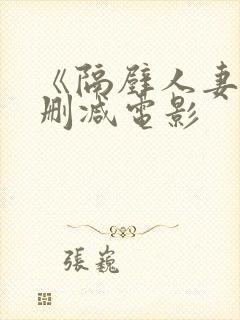 《隔壁人妻
删减电影
張巍